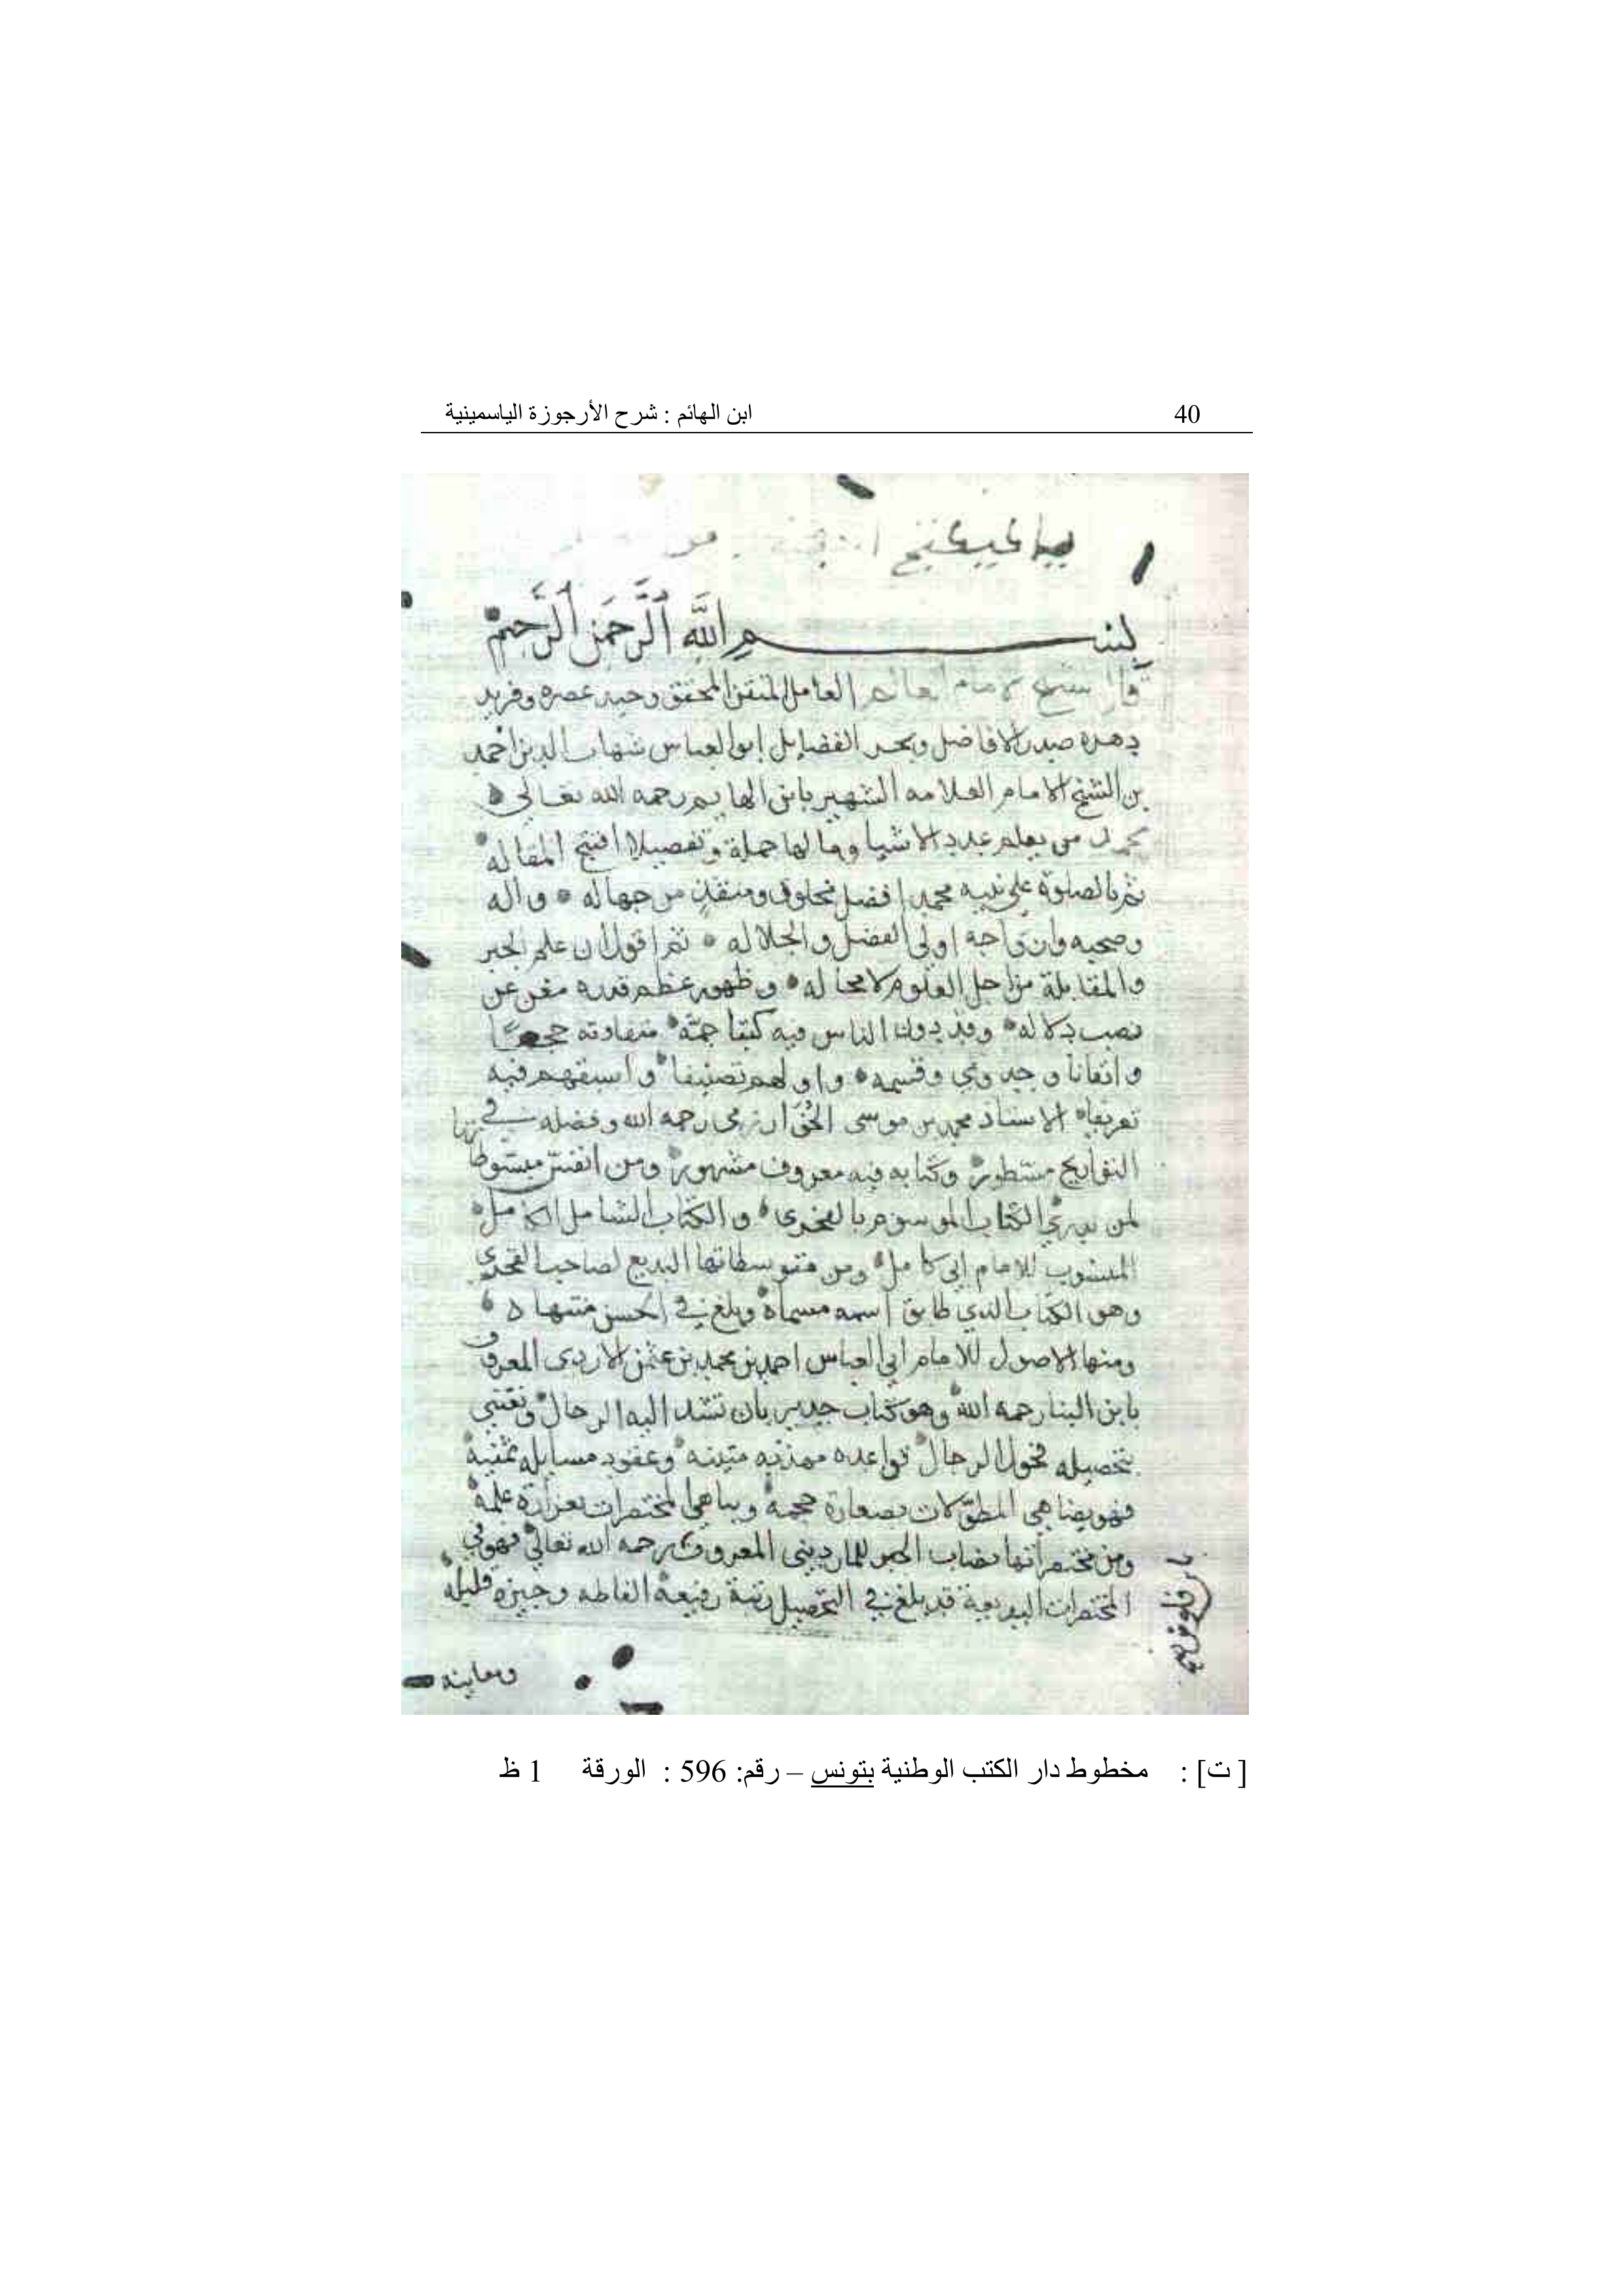 40 ابن الهائم : شرح الأرجوزة الياسمينية
بسم الله الرحمن الرحيم
قال الشيخ الامام العالم العامل المتقن المحقق وحيد عصره وفريد
دهره صدر الافاضل وبحر الفضايل ابو العباس شهاب الدين احمد
بن الشيخ الامام العلامه الشهير بابن الهايم رحمه الله تعالى
بحمد من يعلم عدد الاشيا ومالها جملة وتفصيلا افتتح المقاله
ثم بالصلوة على نبيه محمد افضل مخلوق ومنقذ من جهاله واله
وصحبه وازواجه اولي الفضل والجلاله ثم اقول ان علم الجبر
والمقابلة من اجل العلوم لا محاله وظهور عظم قدره مغن عن
نصب دلاله وقد دون الناس فيه كتبا جمة متفاوته حجما
واتقانا وجدوى وقسمه واولهم تصنيفا واسبقهم فيه
تعريفا الاستاذ محمد بن موسى الخوارزمي رحمه الله وفضله في
مسطور وكتابه فيه معروف مشهور ومن انفس مبسوطاتها
لمن يدري الكتاب الموسوم بالفخري والكتاب الشامل الكامل
المنسوب للامام ابي كامل ومن متوسطاتها البديع لصاحب الفخري
وهو الكتاب الذي طابق اسمه مسماه وبلغ في الحسن منتهاه
ومنها الاصول للامام ابي العباس احمد بن محمد بن عثمن الازدى المعروف
بابن البنا رحمه الله وهو كتاب جدير بان تشد اليه الرحال وتعتني
بتحصيله فحول الرجال قواعده مهذبه متينه وعقود مسايله ثمينة
فهو يضاهي المطولات بصغارة حجمه ويباهي المختصرات بغزارة علمه
ومن مختصراتها نصاب الجبر للمارديني المعروف رحمه الله تعالى فهو في
المختصرات البديعة قد بلغ في التحصيل رتبة رفيعة الفاظه وجيزة قليله
ومعاينه
[ ت] : مخطوط دار الكتب الوطنية بتونس – رقم: 596 : الورقة 1 ظ